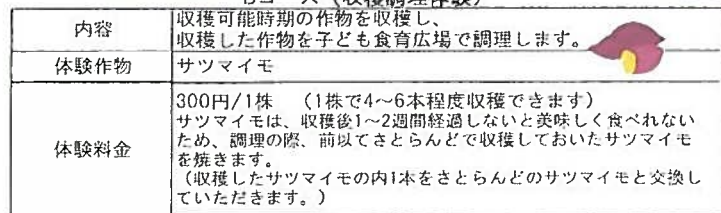 コース（収穫調理体験）
内容
収穫可能時期の作物を収穫し、
収穫した作物を子ども食育広場で調理します。
体験作物
サツマイモ
体験料金
300円/1株　（1株で4～6本程度収穫できます）
サツマイモは、収穫後1～2週間経過しないと美味しく食べれない
ため、調理の際、前以てさとらんどで収穫しておいたサツマイモ
を焼きます。
（収穫したサツマイモの内1本をさとらんどのサツマイモと交換し
ていただきます。）